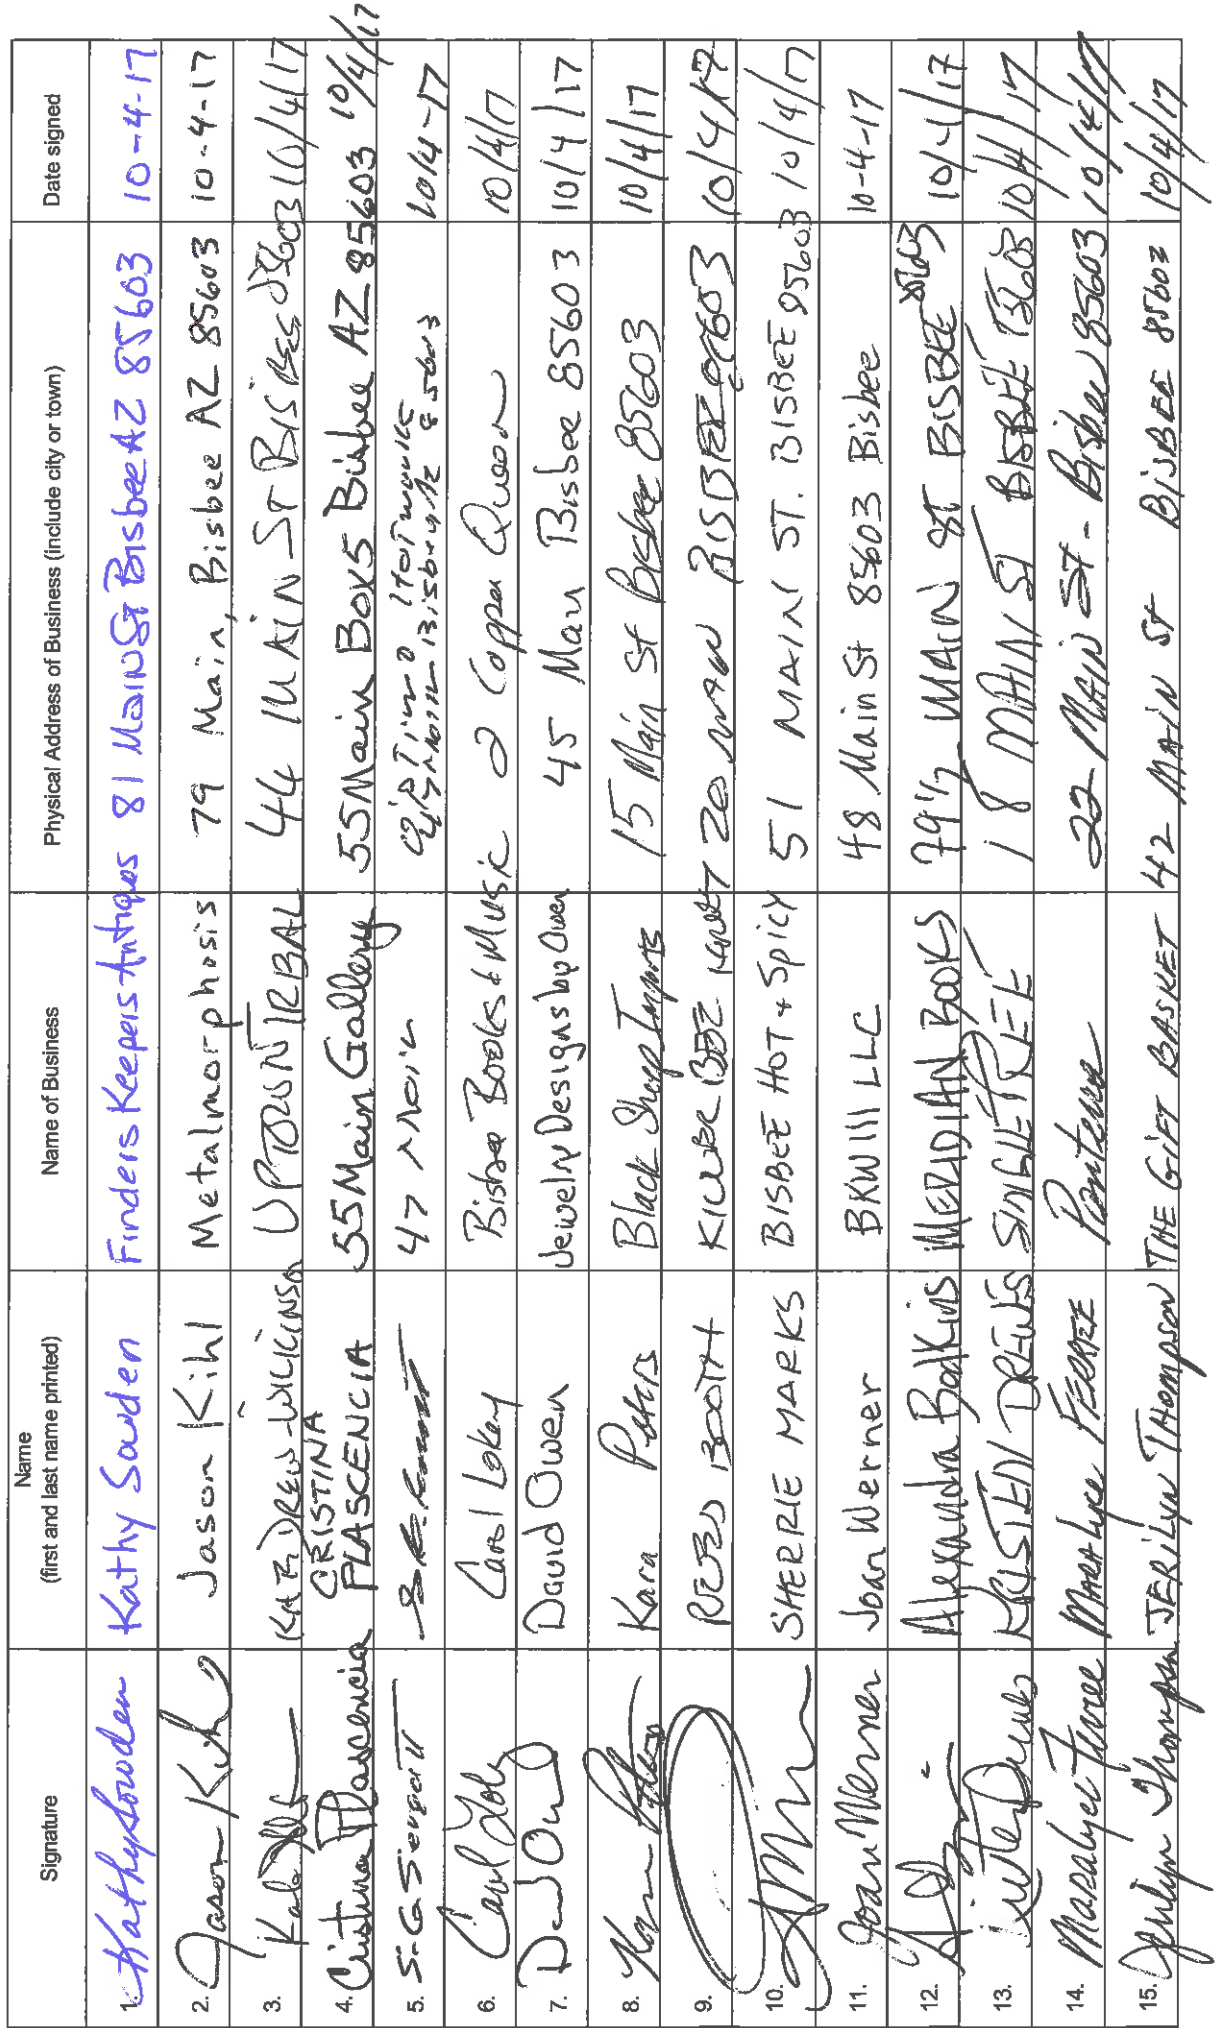 Signature Name Name of Business Physical Address of Business (include city or town) Date signed
(first and last name printed)
1. Kathy Sowden Kathy Sowden Finders Keepers Antiques 81 Main St Bisbee AZ 85603 10-4-17
2. Jason Kihl Jason Kihl Metalmorphosis 79 Main, Bisbee AZ 85603 10-4-17
3. 44 MAIN ST BISBEE 85603 10/4/17
4. Cristina Plascencia CRISTINA PLASCENCIA 55 Main Gallery 55 Main Box 5 Bisbee AZ 85603 10/4/17
5. 47 Main 47 Main Bisbee AZ 85603 10/4-17
6. Carol Loky Carol Lokey Bisbee Books & Music 2 Copper Queen 10/4/17
7. D Owen David Owen Jewelry Designs by Owen 45 Main Bisbee 85603 10/4/17
8. Kara Peters Kara Peters Black Sheep Imports 15 Main St Bisbee 85603 10/4/17
9. BOOTH 20 MAIN BISBEE 85603 10/4/17
10. SHERRIE MARKS BISBEE HOT & Spicy 51 MAIN ST. BISBEE 85603 10/4/17
11. Joan Werner Joan Werner BKW III LLC 48 Main St 85603 Bisbee 10-4-17
12. Alexandra Bodkins MERIDIAN BOOKS 79 1/2 MAIN ST BISBEE 85603 10/4/17
13. Kristen Drewes KRISTEN DREWES SINGLETREE 18 MAIN ST BISBEE 85603 10/4/17
14. Maralyce Ferree MARALYCE FERREE Panterra 22 MAIN ST - Bisbee 85603 10/4/17
15. Jerilyn Thompson JERILYN THOMPSON THE GIFT BASKET 42 MAIN ST BISBEE 85603 10/4/17